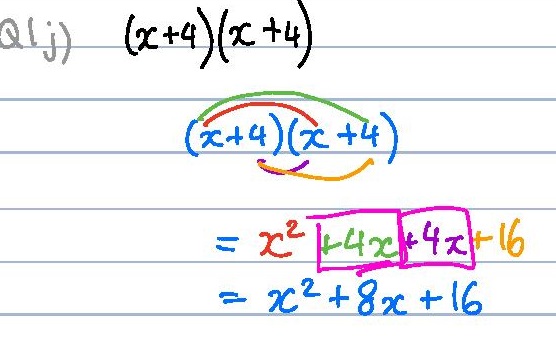 Q1j) (x+4)(x+4)
(x+4)(x+4)
= x² +4x +4x +16
= x² + 8x + 16